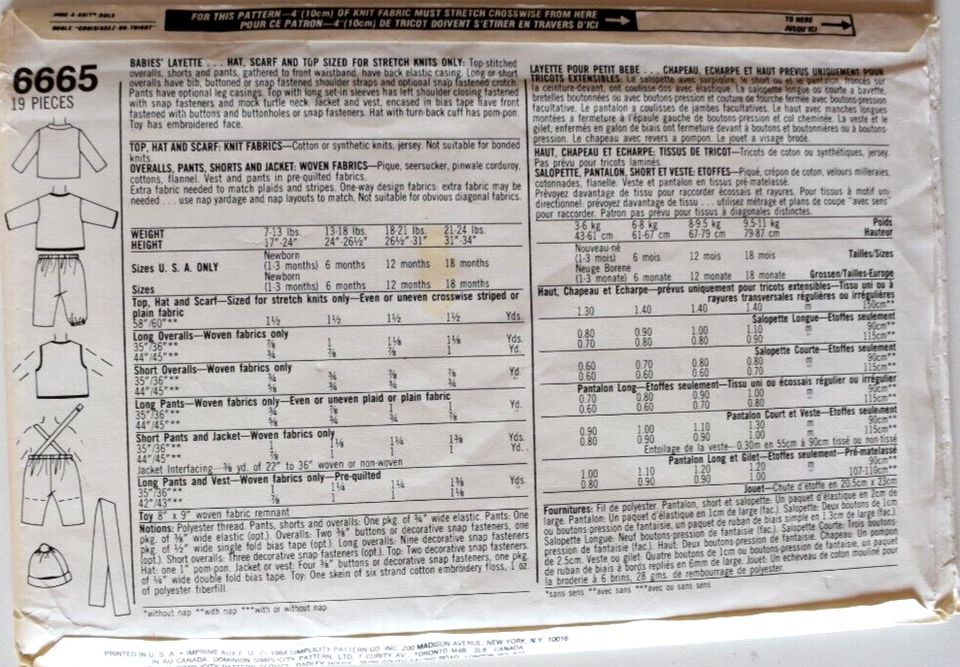 FOR THIS PATTERN—4" (10cm) OF KNIT FABRIC MUST STRETCH CROSSWISE FROM HERE
POUR CE PATRON—4"(10cm) DE TRICOT DOIVENT S'ETIRER EN TRAVERS D'ICI
TO HERE
JUSQU'ICI
6665
19 PIECES
BABIES' LAYETTE . . . HAT, SCARF AND TOP SIZED FOR STRETCH KNITS ONLY: Top-stitched
overalls, shorts and pants, gathered to front waistband, have back elastic casing. Long or short
overalls have bib, buttoned or snap fastened shoulder straps and optional snap fastened crotch.
Pants have optional leg casings. Top with long set-in sleeves has left shoulder closing fastened
with snap fasteners and mock turtle neck. Jacket and vest, encased in bias tape have front
fastened with buttons and buttonholes or snap fasteners. Hat with turn-back cuff has pom-pon.
Toy has embroidered face.
TOP, HAT AND SCARF: KNIT FABRICS—Cotton or synthetic knits, jersey. Not suitable for bonded
knits.
OVERALLS, PANTS, SHORTS AND JACKET: WOVEN FABRICS—Pique, seersucker, pinwale corduroy,
cottons, flannel. Vest and pants in pre-quilted fabrics.
Extra fabric needed to match plaids and stripes. One-way design fabrics: extra fabric may be
needed . . . use nap yardage and nap layouts to match. Not suitable for obvious diagonal fabrics.
WEIGHT 7-13 lbs. 13-18 lbs. 18-21 lbs. 21-24 lbs.
HEIGHT 17"-24" 24"-26½" 26½"-31" 31"-34"
Newborn
Sizes U. S. A. ONLY (1-3 months) 6 months 12 months 18 months
Newborn
Sizes (1-3 months) 6 months 12 months 18 months
Top, Hat and Scarf—Sized for stretch knits only—Even or uneven crosswise striped or
plain fabric
58"/60"** 1½ 1½ 1½ 1½ Yds.
Long Overalls—Woven fabrics only
35"/36"** ⅞ 1 1⅛ 1⅛ Yds.
44"/45"** ¾ ⅞ ⅞ 1 Yd.
Short Overalls—Woven fabrics only
35"/36"** ¾ ¾ ⅞ ⅞ Yd.
44"/45"** ⅝ ¾ ¾ ¾
Long Pants—Woven fabrics only—Even or uneven plaid or plain fabric
35"/36"** ¾ ⅞ 1 1 Yd.
44"/45"** ⅝ ⅝ ¾ ⅞
Short Pants and Jacket—Woven fabrics only
35"/36"** 1 1⅛ 1¼ 1⅜ Yds.
44"/45"** ⅞ 1 1 1 Yds.
Jacket Interfacing ⅜ yd. of 22" to 36" woven or non-woven
Long Pants and Vest—Woven fabrics only—Pre-quilted
35"/36"** 1 1¼ 1¼ 1⅜ Yds.
42"/43"** ⅞ 1 1 1⅛
Toy 8" x 9" woven fabric remnant
Notions: Polyester thread. Pants, shorts and overalls: One pkg. of ¾" wide elastic. Pants: One
pkg. of ⅜" wide elastic (opt.). Overalls: Two ⅜" buttons or decorative snap fasteners, one
pkg. of ½" wide single fold bias tape (opt.). Long overalls: Nine decorative snap fasteners
(opt.). Short overalls: Three decorative snap fasteners (opt.). Top: Two decorative snap fasteners.
Hat: one 1" pom-pon. Jacket or vest: Four ⅜" buttons or decorative snap fasteners, one pkg.
of ¼" wide double fold bias tape. Toy: One skein of six strand cotton embroidery floss, 1 oz.
of polyester fiberfill.
*without nap **with nap ***with or without nap
LAYETTE POUR PETIT BEBE . . . CHAPEAU, ECHARPE ET HAUT PREVUS UNIQUEMENT POUR
TRICOTS EXTENSIBLES: La salopette avec surpiqûre, le short et le pantalon, froncés sur
la ceinture devant, ont coulisse-dos avec élastique. La salopette longue ou courte a bavette,
bretelles boutonnées ou avec boutons-pression et couture de fourche fermée avec boutons-pression
facultative. Le pantalon a coulisses de jambes facultatives. Le haut avec manches longues
montées a fermeture à l'épaule gauche de boutons-pression et col cheminée. La veste et le
gilet, enfermés en galon de biais ont fermeture devant à boutons et boutonnières ou à boutons-
pression. Le chapeau avec revers a pompon. Le jouet a visage brodé.
HAUT, CHAPEAU ET ECHARPE: TISSUS DE TRICOT—Tricots de coton ou synthétiques, jersey.
Pas prévu pour tricots laminés.
SALOPETTE, PANTALON, SHORT ET VESTE: ETOFFES—Piqué, crépon de coton, velours milleraies,
cotonnades, flanelle. Veste et pantalon en tissus pré-matelassé.
Prévoyez davantage de tissu pour raccorder écossais et rayures. Pour tissus à motif uni-
directionnel: prévoyez davantage de tissu . . . utilisez métrage et plans de coupe "avec sens"
pour raccorder. Patron pas prévu pour tissus à diagonales distinctes.
3-6 kg 6-8 kg 8-9.5 kg 9.5-11 kg Poids
43-61 cm 61-67 cm 67-79 cm 79-87 cm Hauteur
Nouveau-né
(1-3 mois) 6 mois 12 mois 18 mois Tailles/Sizes
Neuge Borene
(1-3 monate) 6 monate 12 monate 18 monate Grossen/Tailles-Europe
Haut, Chapeau et Echarpe—prévus uniquement pour tricots extensibles—Tissu uni ou à
rayures transversales régulières ou irrégulières
1.30 1.40 1.40 1.40 m 150cm**
Salopette Longue—Etoffes seulement
0.80 0.90 1.00 1.10 m 90cm**
0.70 0.80 0.80 0.90 115cm**
Salopette Courte—Etoffes seulement
0.60 0.70 0.80 0.80 m 90cm**
0.60 0.60 0.60 0.70 115cm**
Pantalon Long—Etoffes seulement—Tissu uni ou écossais régulier ou irrégulier
0.70 0.80 0.90 1.00 m 90cm**
0.60 0.60 0.70 0.80 115cm**
Pantalon Court et Veste—Etoffes seulement
0.90 1.00 1.10 1.30 m 90cm**
0.80 0.90 0.90 1.00 115cm**
Entoilage de la veste—0.30m en 55cm à 90cm tissé ou non-tissé
Pantalon Long et Gilet—Etoffes seulement—Pré-matelassé
1.00 1.10 1.20 1.20 m 90cm**
0.80 0.90 1.00 1.00 107-110cm**
Jouet—Chute d'étoffe en 20.5cm x 23cm
Fournitures: Fil de polyester. Pantalon, short et salopette: Un paquet d'élastique en 2cm de
large. Pantalon: Un paquet d'élastique en 1cm de large (fac.). Salopette: Deux boutons de 1cm
ou boutons-pression de fantaisie, un paquet de ruban de biais simple en 1.3cm de large (fac.).
Salopette Longue: Neuf boutons-pression de fantaisie (fac.). Salopette Courte: Trois boutons-
pression de fantaisie (fac.). Haut: Deux boutons-pression de fantaisie. Chapeau: Un pompon
de 2.5cm. Veste ou gilet: Quatre boutons de 1cm ou boutons-pression de fantaisie, un paquet
de ruban de biais à bords repliés en 6mm de large. Jouet: Un écheveau de coton mouliné pour
la broderie à 6 brins, 28 gms. de rembourrage de polyester.
*sans sens **avec sens ***avec ou sans sens
PRINTED IN U. S. A. • IMPRIME AUX E. U. © 1984 SIMPLICITY PATTERN CO. INC. 200 MADISON AVENUE, NEW YORK, N.Y. 10016
IN AU CANADA: DOMINION SIMPLICITY PATTERN, LTD. 7 CURITY AV., TORONTO M4B 3L8 CANADA